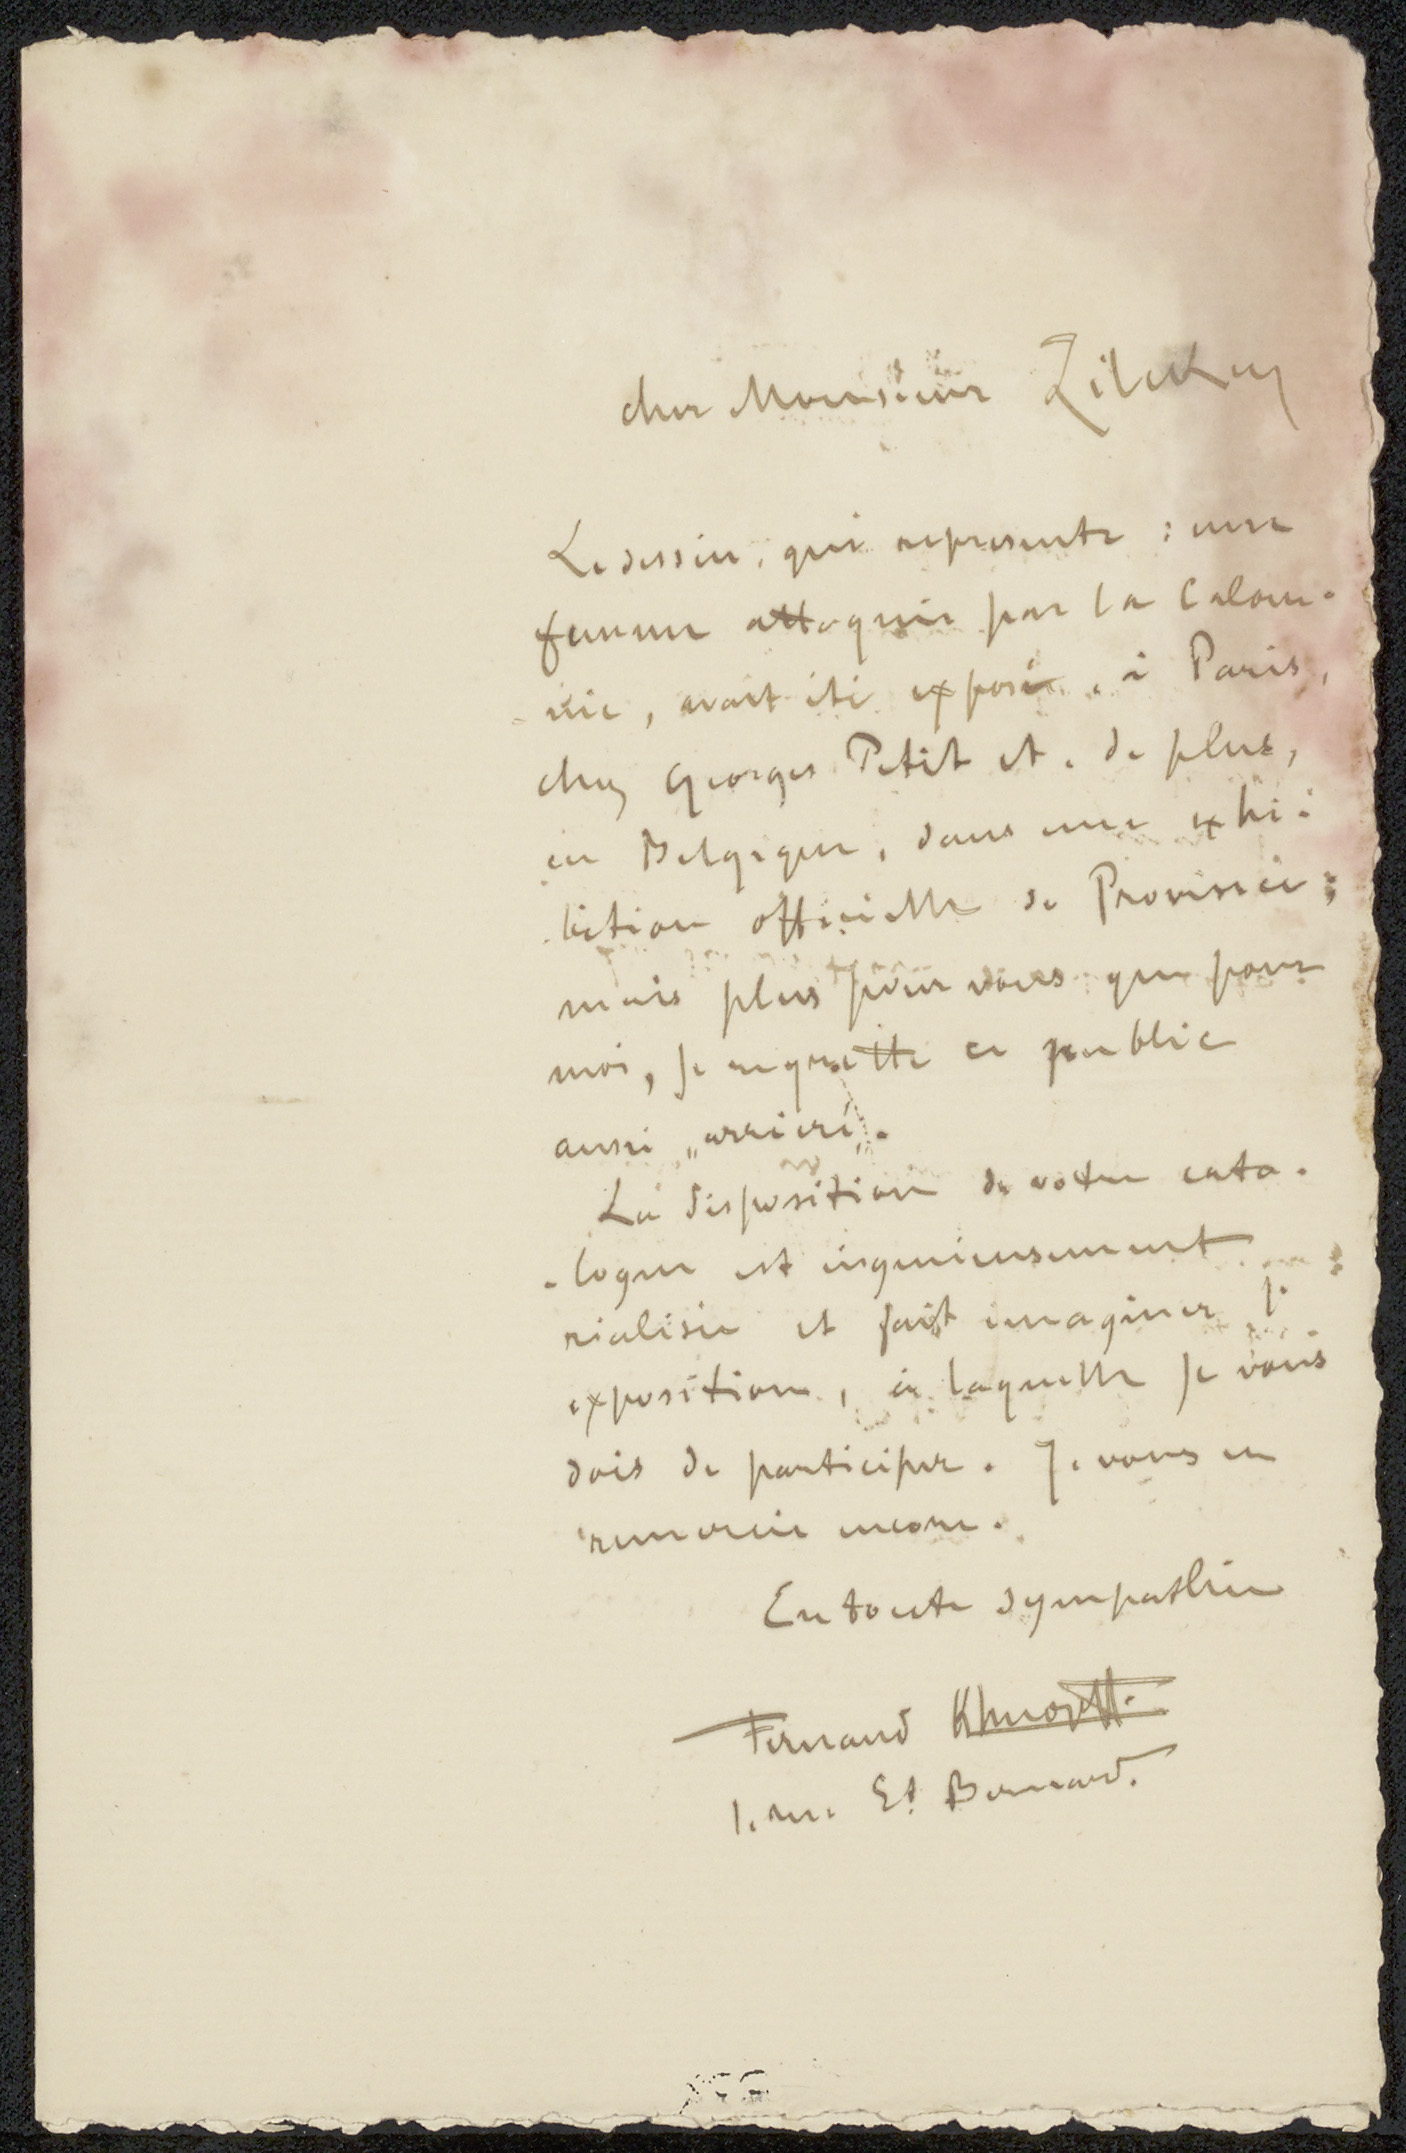 cher Monsieur Zilcken
Le dessin, qui represente : une
femme attaquée par la Calom-
-nie, avait été exposé, à Paris,
chez Georges Petit et, de plus,
en Belgique, dans une exhi-
-bition officielle de Province;
mais plus pour vous que pour
moi, je regrette ce public
aussi „arriéré".
La disposition de votre cata-
-logue est ingenieusement
réalisée et fait imaginer l'
exposition, à laquelle je vous
dois de participer. Je vous en
remercie encore.
En toute sympathie
Fernand Khnopff.
1. rue St Bernard.